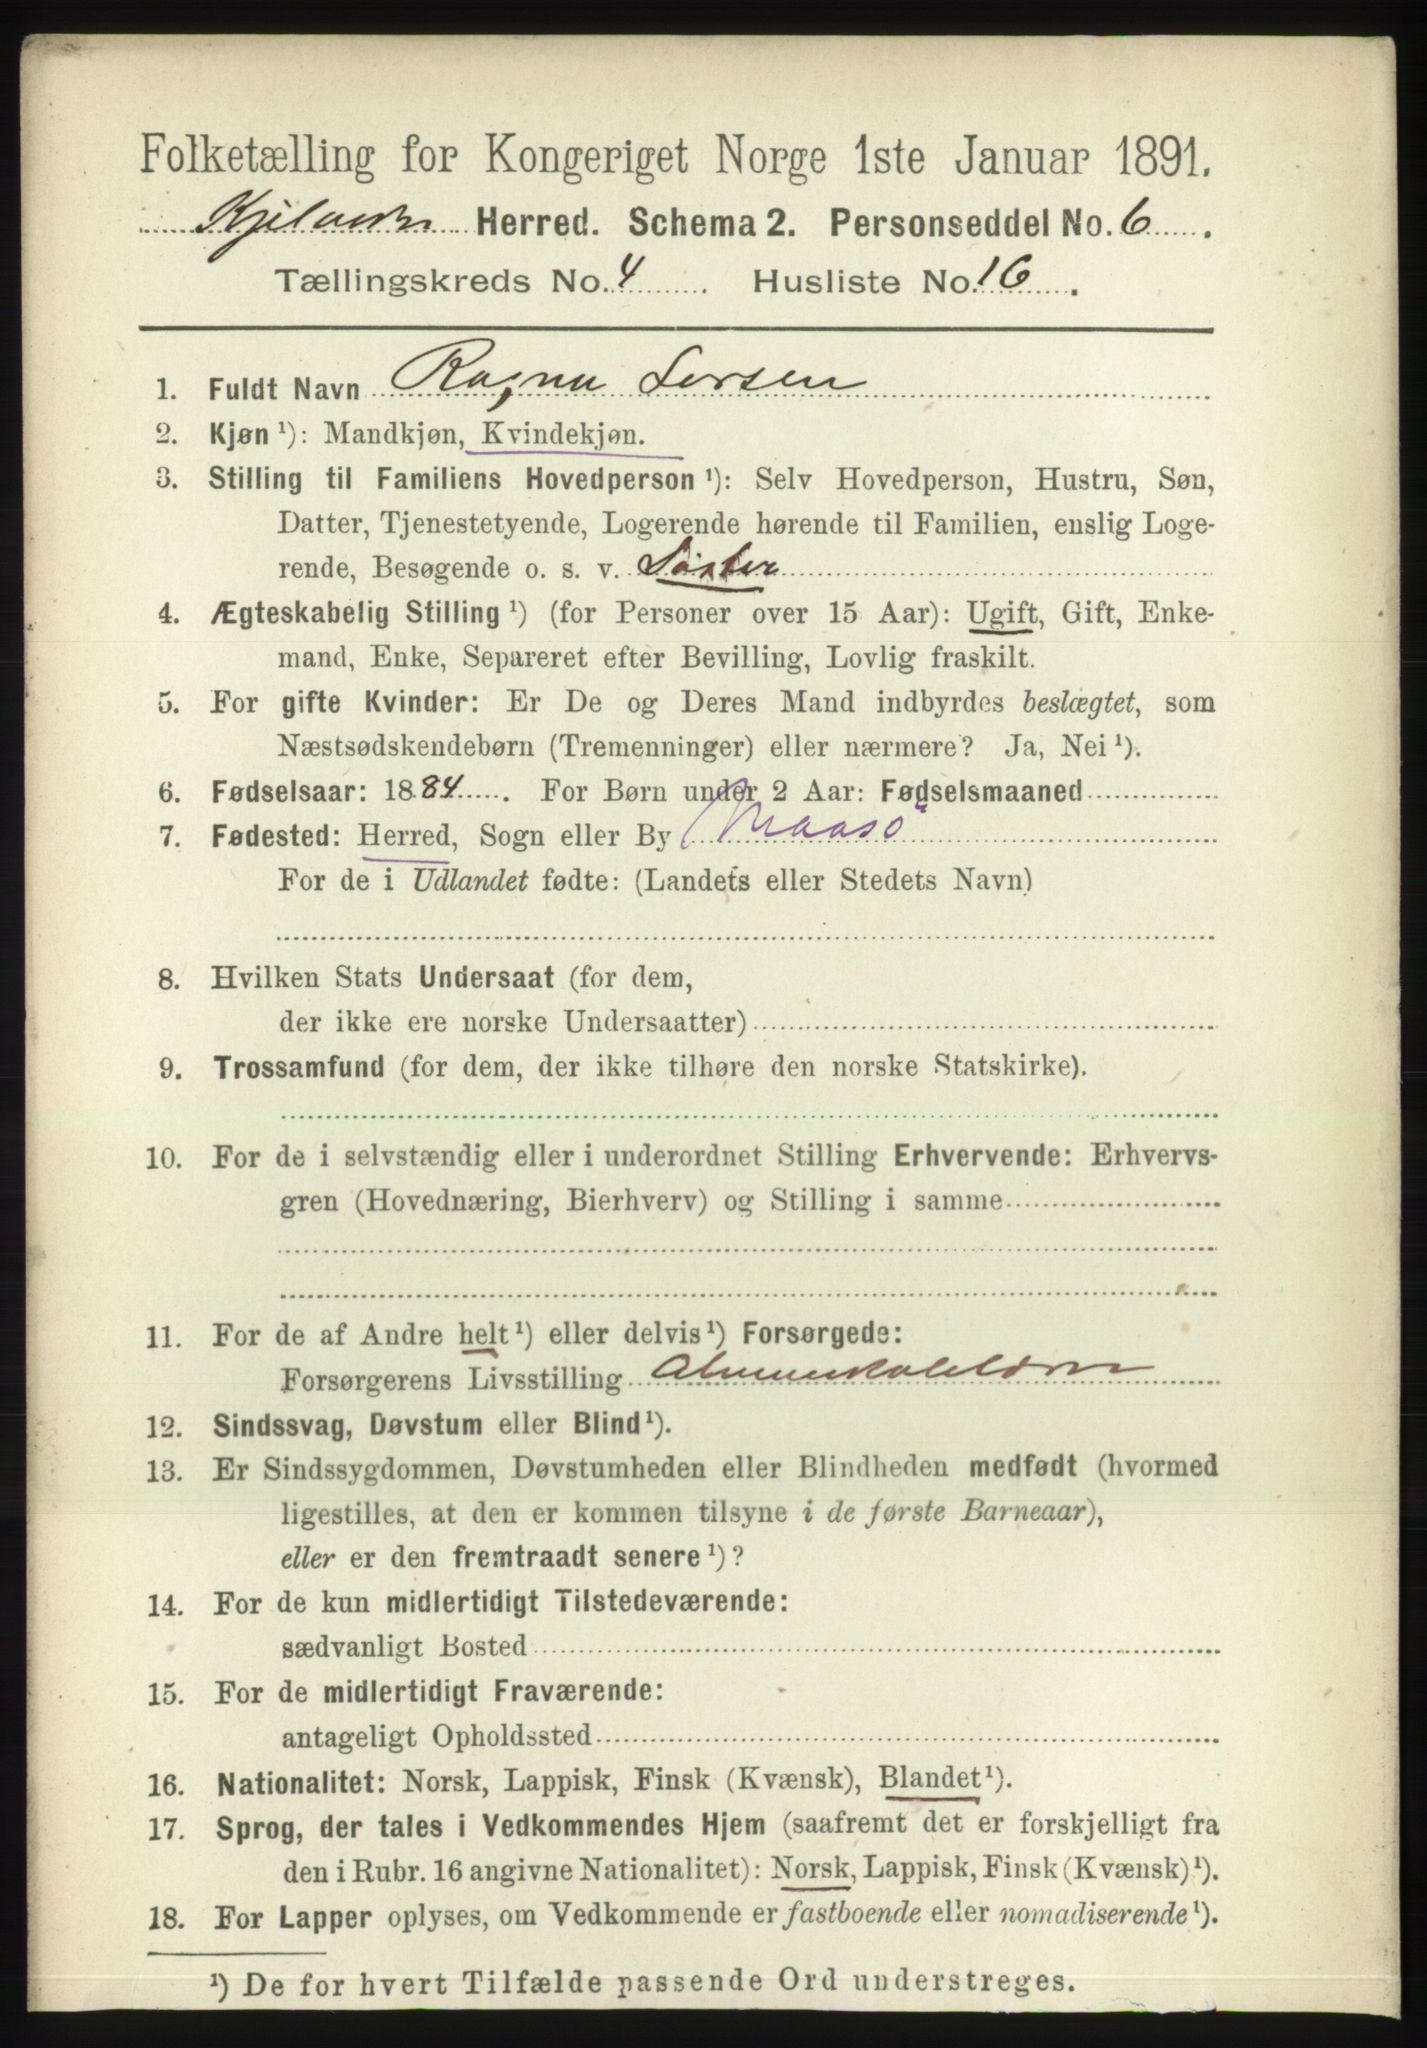 Folketælling for Kongeriget Norge 1ste Januar 1891.
Herred. Schema 2. Personseddel No. 6.
Tællingskreds No. 4. Husliste No. 16.
1. Fuldt Navn Ragna Larsen
2. Kjøn ¹): Mandkjøn, Kvindekjøn.
3. Stilling til Familiens Hovedperson ¹): Selv Hovedperson, Hustru, Søn,
Datter, Tjenestetyende, Logerende hørende til Familien, enslig Loge-
rende, Besøgende o. s. v. Søster
4. Ægteskabelig Stilling ¹) (for Personer over 15 Aar): Ugift, Gift, Enke-
mand, Enke, Separeret efter Bevilling, Lovlig fraskilt.
5. For gifte Kvinder: Er De og Deres Mand indbyrdes beslægtet, som
Næstsødskendebørn (Tremenninger) eller nærmere? Ja, Nei ¹).
6. Fødselsaar: 1884. For Børn under 2 Aar: Fødselsmaaned
7. Fødested: Herred, Sogn eller By Maasö
For de i Udlandet fødte: (Landets eller Stedets Navn)
8. Hvilken Stats Undersaat (for dem,
der ikke ere norske Undersaatter)
9. Trossamfund (for dem, der ikke tilhøre den norske Statskirke).
10. For de i selvstændig eller i underordnet Stilling Erhvervende: Erhvervs-
gren (Hovednæring, Bierhverv) og Stilling i samme
11. For de af Andre helt ¹) eller delvis ¹) Forsørgede:
Forsørgerens Livsstilling
12. Sindssvag, Døvstum eller Blind ¹).
13. Er Sindssygdommen, Døvstumheden eller Blindheden medfødt (hvormed
ligestilles, at den er kommen tilsyne i de første Barneaar),
eller er den fremtraadt senere ¹)?
14. For de kun midlertidigt Tilstedeværende:
sædvanligt Bosted
15. For de midlertidigt Fraværende:
antageligt Opholdssted
16. Nationalitet: Norsk, Lappisk, Finsk (Kvænsk), Blandet ¹).
17. Sprog, der tales i Vedkommendes Hjem (saafremt det er forskjelligt fra
den i Rubr. 16 angivne Nationalitet): Norsk, Lappisk, Finsk (Kvænsk) ¹).
18. For Lapper oplyses, om Vedkommende er fastboende eller nomadiserende ¹).
¹) De for hvert Tilfælde passende Ord understreges.